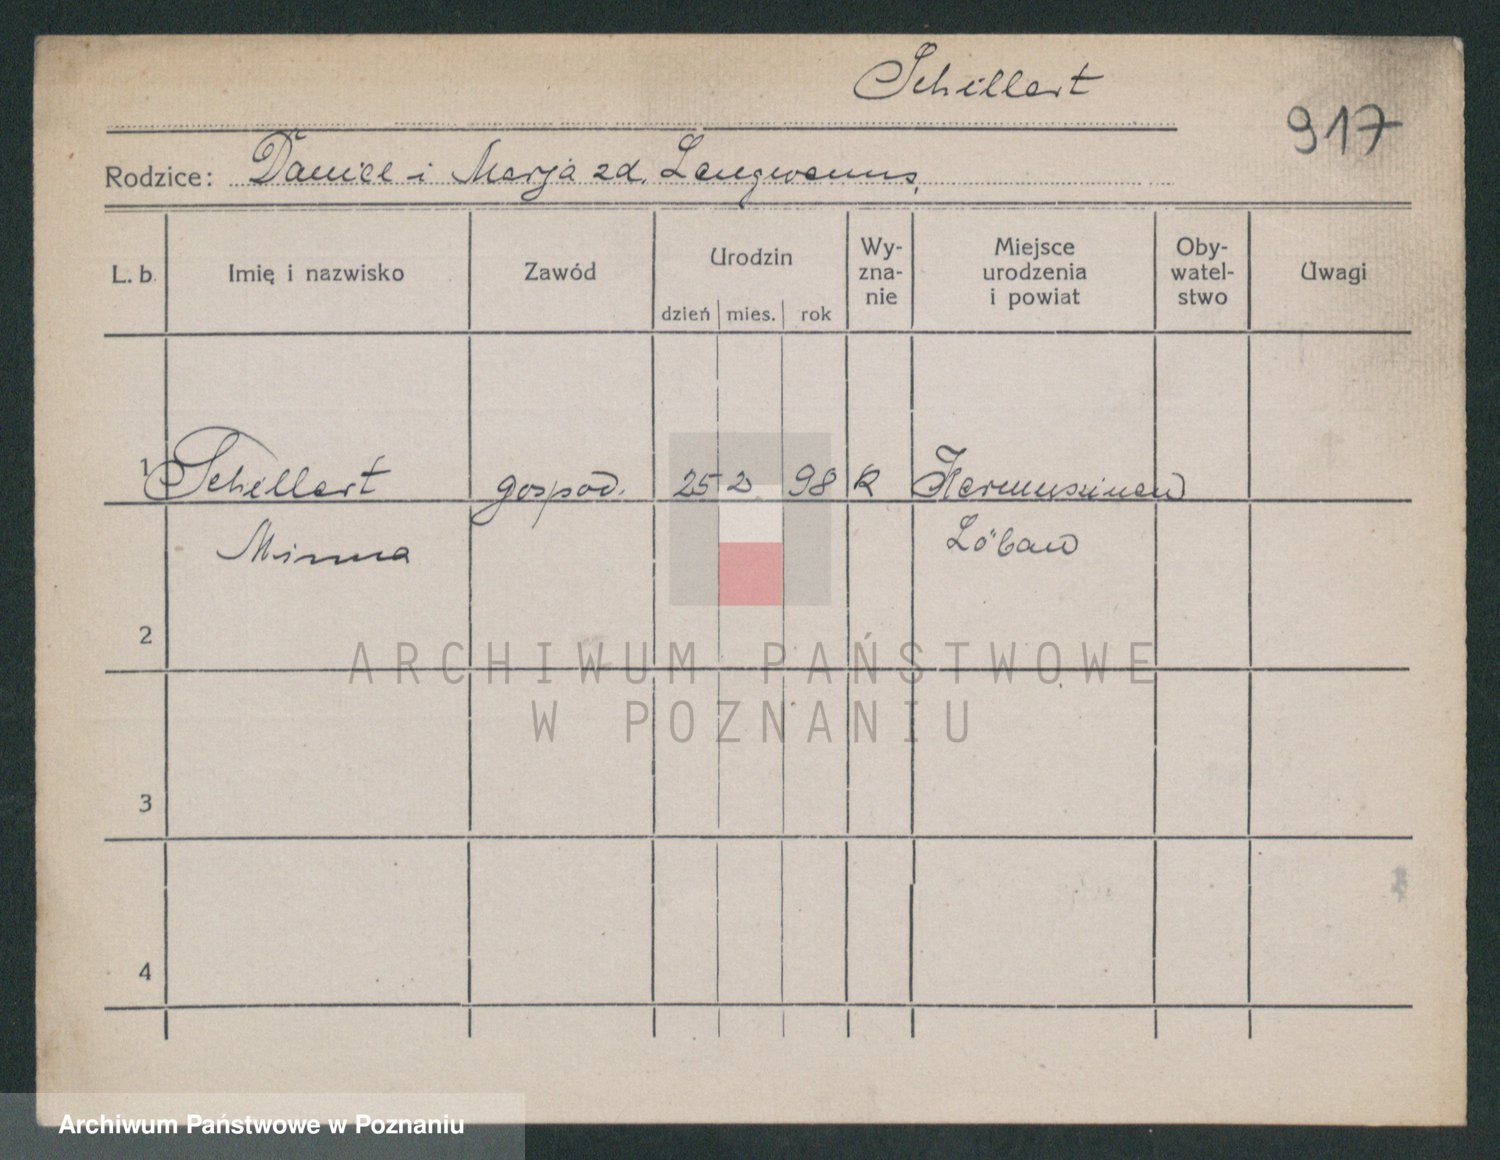 Schillert
917
Rodzice: Daniel i Marja zd.
L. b. Imię i nazwisko Zawód Urodzin Wy-zna-nie Miejsce urodzenia i powiat Oby-watel-stwo Uwagi
dzień mies. rok
1 Schillert gospod. 25 2 98
Minna Löbau
2
ARCHIWUM PAŃSTWOWE
W POZNANIU
3
4
Archiwum Państwowe w Poznaniu